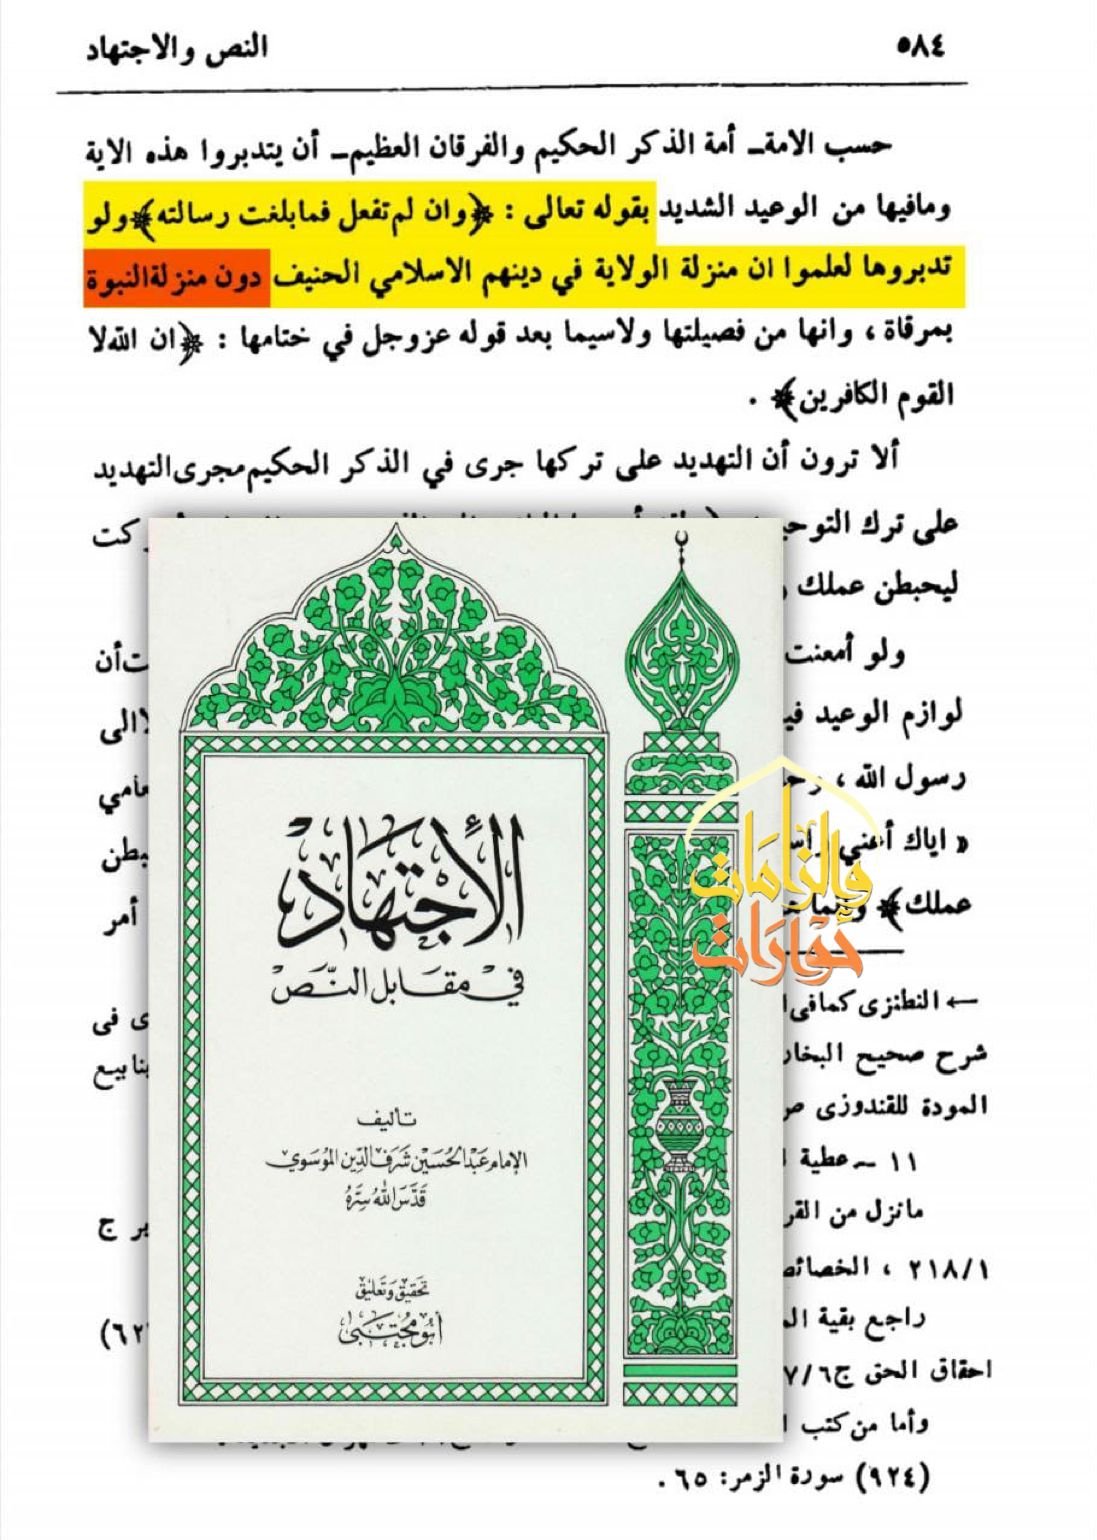 ٥٨٤
النص والاجتهاد
حسب الامة ـ أمة الذكر الحكيم والفرقان العظيم ـ أن يتدبروا هذه الاية
ومافيها من الوعيد الشديد بقوله تعالى : ﴿وان لم تفعل فمابلغت رسالته﴾ ولو
تدبروها لعلموا ان منزلة الولاية في دينهم الاسلامي الحنيف دون منزلة النبوة
بمرقاة ، وانها من فصيلتها ولاسيما بعد قوله عزوجل في ختامها : ﴿ان الله لا
القوم الكافرين﴾ .
ألا ترون أن التهديد على تركها جرى في الذكر الحكيم مجرى التهديد
على ترك
ليحبطن عملك
ولو أمعنت
لوازم الوعيد
رسول الله ،
« اياك أعني
عملك﴾
أمر
← النطنزى كمافى
شرح صحيح
المودة للقندوزى
ينابيع
١١ ـ عطية
مانزل من
٢١٨/١ ،
راجع بقية
احقاق الحق ج٦/
وأما من كتب
(٩٢٤) سورة الزمر: ٦٥ .
الاجتهاد
في مقابل النص
تأليف
الإمام عبد الحسين شرف الدين الموسوي
قدس الله سره
تحقيق وتعليق
أبو مجتبى
حوارات
والزامات